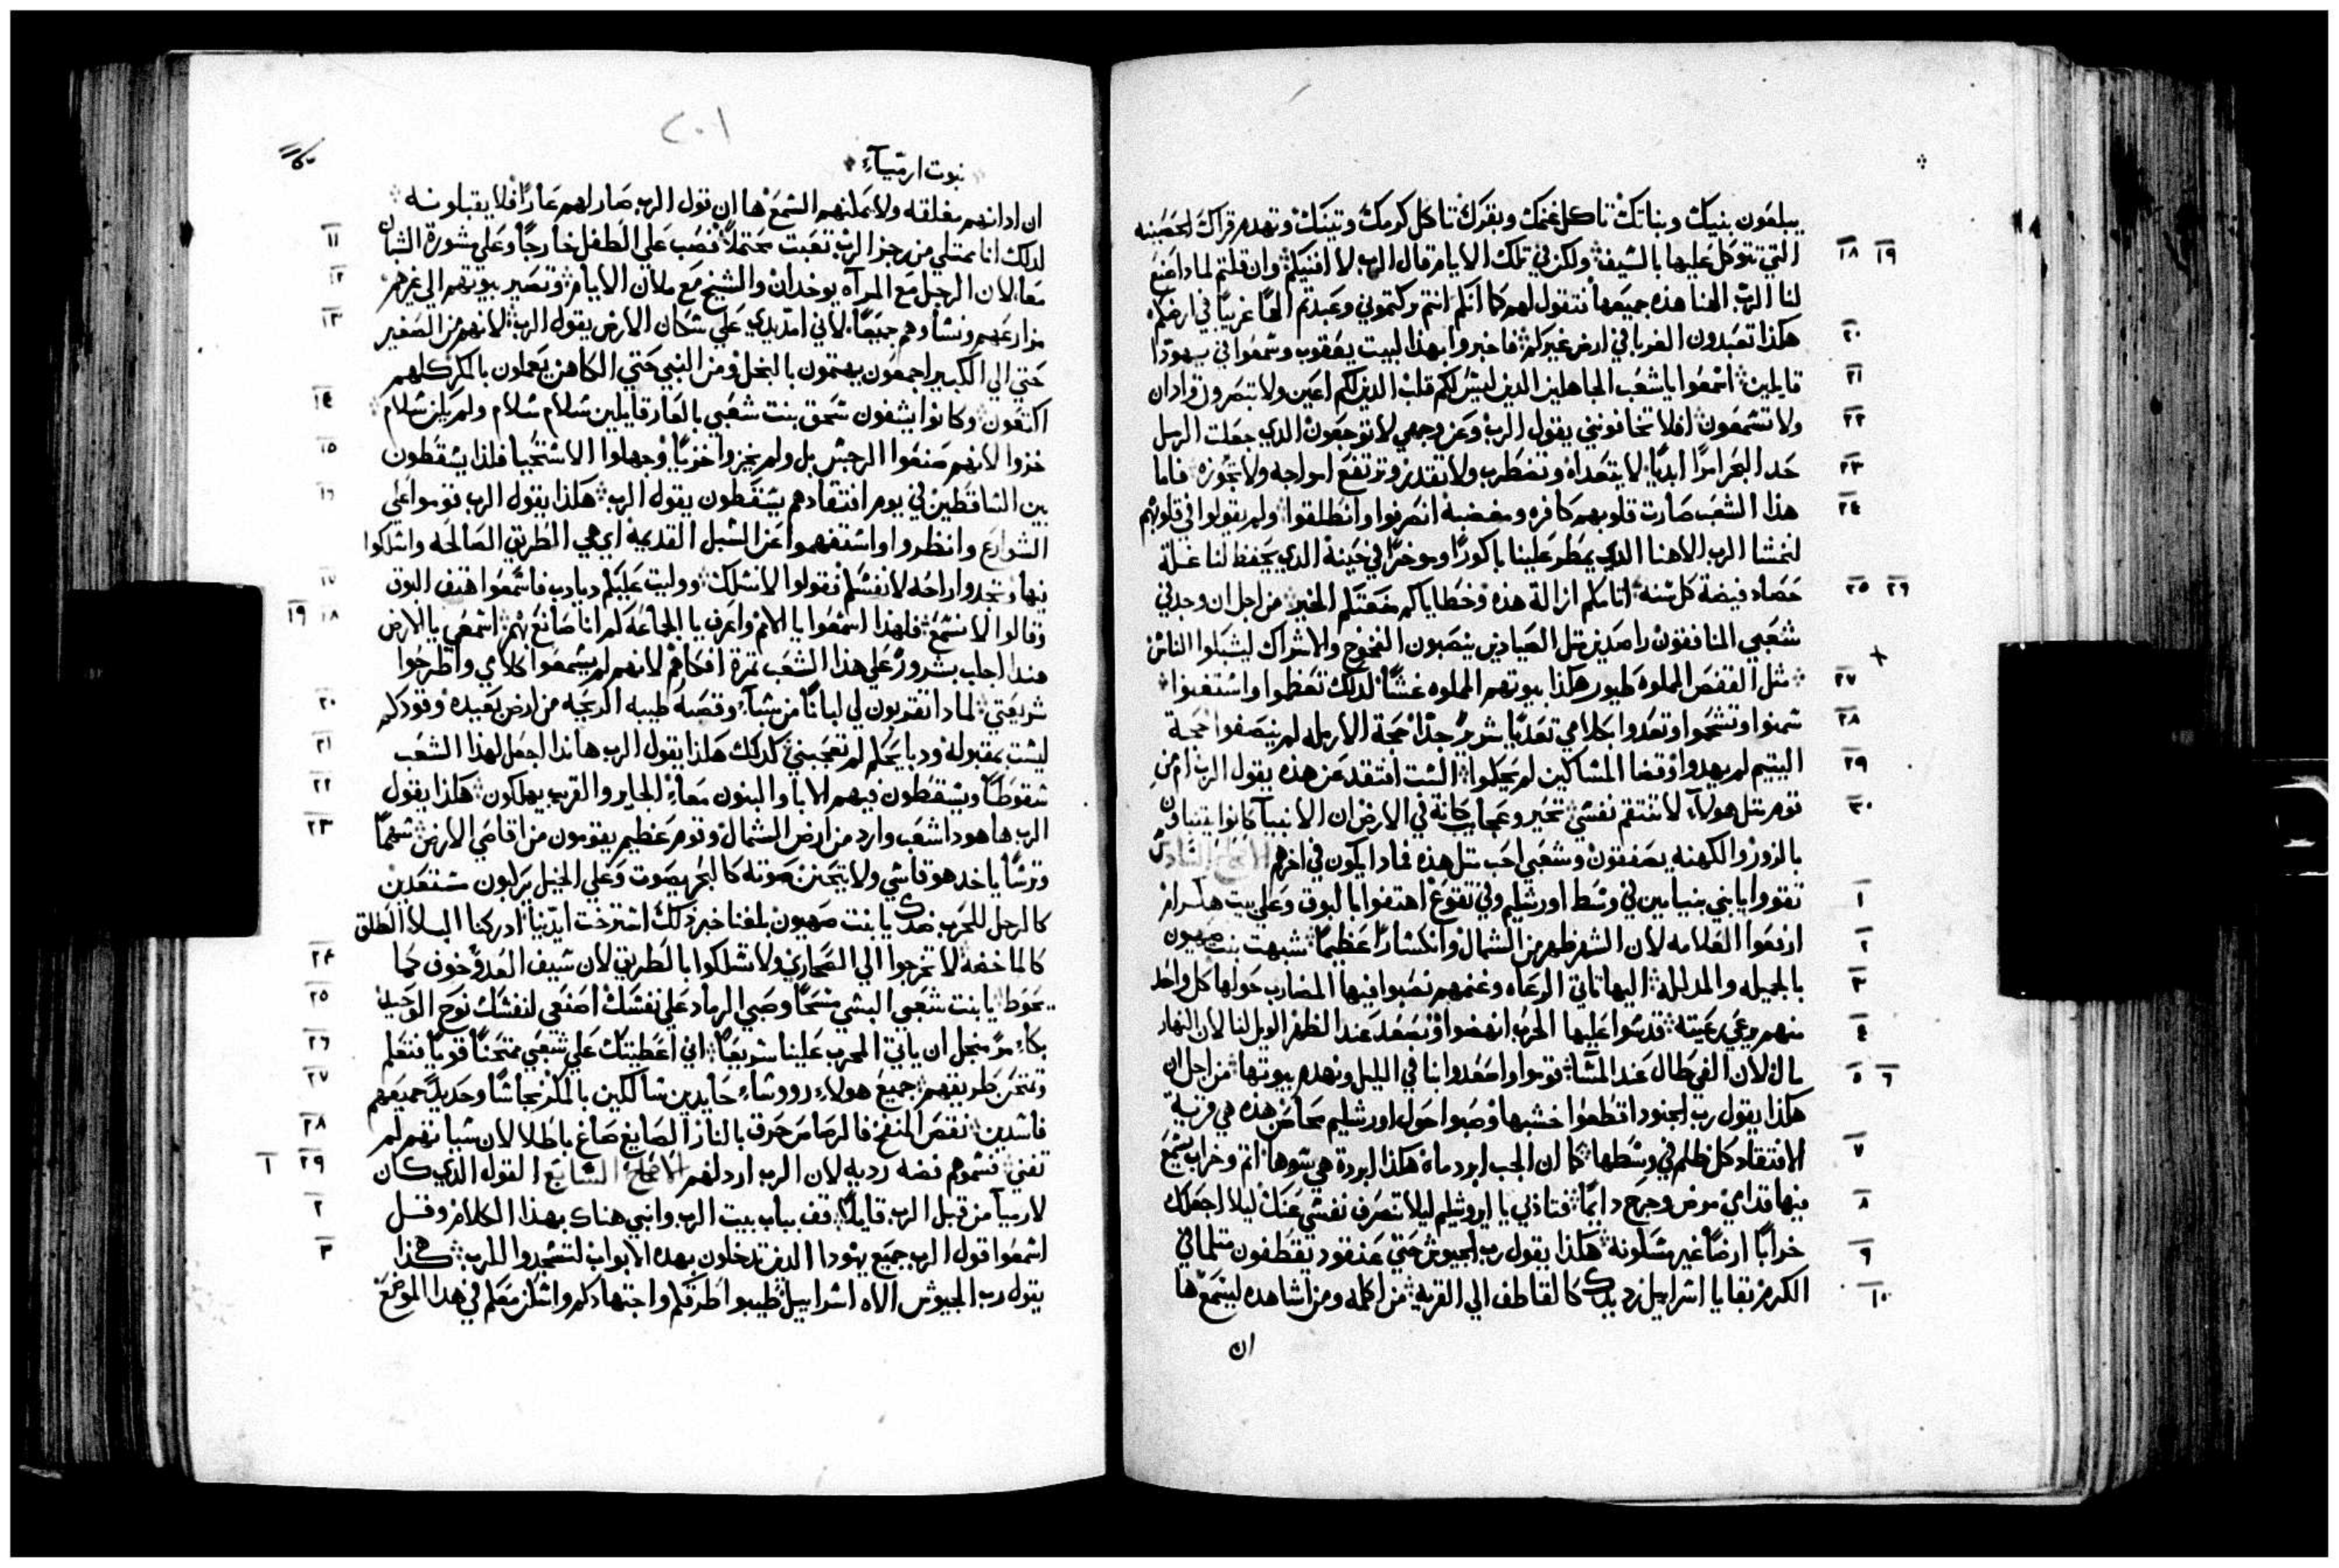 يبلعون بنيك وبناتك تاكل غنمك وبقرك تاكل كرمك وتينك وتهدم قراك الحصينه
١٨ ١٩ التي تتوكل عليها بالسيف ولكن في تلك الايام قال الرب لا افنيكم وان قلتم لماذا صنع
لنا الرب الهنا هذه جميعها فتقول لهم كما انكم انتم تركتموني وعبدتم الها غريبا في ارضكم
٢٠ هكذا تعبدون الغربا في ارض غيركم فاخبروا بهذا لبيت يعقوب وسمعوا في يهودا
٢١ قايلين اسمعوا ياشعب الجاهلين الذين ليس لكم قلب الذين لكم اعين ولا تبصرون واذان
٢٢ ولا تسمعون افلا تخافونني يقول الرب وعن وجهي لا توجعون الذي جعلت الرمل
٢٣ حد البحر امرا ابديا لا يتعداه وتضطرب ولا تقدر وترتفع امواجه ولا تجوزه فاما
٢٤ هذا الشعب صارت قلوبهم كافره ومغضبه انصرفوا وانطلقوا ولم يقولوا في قلوبهم
لنخشا الرب الاهنا الذي يمطر علينا باكورا وموخرا في حينه الذي يحفظ لنا غلة
٢٥ ٢٦ حصاد فيضة كل سنه اثامكم ازالة هذه وخطاياكم منعتكم الخير من اجل ان وجد في
شعبي المنافقون راصدين مثل الصيادين ينصبون الفخوخ والاشراك ليشبكوا الناس
٢٧ مثل القفص المملوه طيور هكذا بيوتهم المملوه غشا لدلك تعظموا واستغنوا
٢٨ سمنوا وتشحموا وتعدوا كلامي تعديا شريرا جدا حجة الارمله لم ينصفوا حجة
٢٩ اليتيم لم يهدوا وقضا المساكين لم يحكموا الست افتقد عن هذه يقول الرب ام من
٣٠ قوم مثل هولاء لا تنتقم نفسي تحير وعجايب كاينة في الارض ان الانبيا كانوا يتنباون
بالزور والكهنه يصفقون وشعبي احب مثل هذه فماذا يكون في اخرهم الاصحاح السادس
١ تقووا يا بني بنيامين في وسط اورشليم وفي تقوع اهتفوا بالبوق وعلى بيت هكرام
٢ ارفعوا العلامه لان الشر ظهر من الشمال وانكسارا عظيما شبهت بنت صهيون
٣ بالجميله والمدلله اليها تاتي الرعاه وغنمهم نصبوا فيها المضارب حولها كل واحد
٤ منهم يرعي رعيته قدسوا عليها الحرب انهضوا ونصعد عند الظهر الويل لنا لان النهار
٥ ٦ مال لان الفي طال عند المسا قوموا واصعدوا بنا في الليل ونهدم بيوتها من اجل ان
هكذا يقول رب الجنود اقطعوا خشبها وصبوا حول اورشليم محاصن هذه هي قرية
٧ الافتقاد كل ظلم في وسطها كما ان الجب ابرد ماه هكذا ابردة هي سوها اثم وخراب يسمع
٨ فيها قدامي مرض وجرح دايما فتاذبي يا ايروشليم ليلا تنصرف نفسي عنك ليلا اجعلك
٩ خرابا ارضا غير مسكونه هكذا يقول رب الجيوش حتي عنقود يقطفون مثلما في
١٠ الكرم بقايا اسرابيل رد يدك كالقاطف الي القرية من اكلمه ومن اشاهده ليسمع ها
ان
٢٠١
نبوت ارمياء
ان ادانهم مغلقه ولا يمكنهم السمع ها ان قول الرب صار لهم عارا فلا يقبلونه
١١ لدلك انا ممتلي من رجز الرب تعبت محتملا فصب على الطفل خارجا وعلى مشورة الشبان
١٢ معا لان الرجل مع المراه يوخدان والشيخ مع ملان الايام وتصير بيوتهم الي غيرهم
١٣ مزارعهم ونساوهم جميعا لاني امد يدي على سكان الارض يقول الرب لانهم من الصغير
حتي الي الكبير اجمعون يهتمون بالبخل ومن النبي حتي الكاهن يعملون بالمكر كلهم
١٤ اكتفون وكانوا يشفون سحق بنت شعبي بالعار قايلين سلام سلام ولم يكن سلام
١٥ خزوا لانهم صنعوا الرجس بل ولم يخزوا خزيا وجهلوا الاستحيا فلذا يسقطون
١٦ بين الساقطين في يوم افتقادهم يسقطون يقول الرب هكذا يقول الرب قوموا على
الشوارع وانظروا واستفهموا عن السبل القديمه اي هي الطريق الصالحه واسلكوا
١٧ فيها وتجدوا راحه لانفسكم فقولوا لا نسلك ووليت عليكم ديادب فاسمعوا هتف البوق
١٨ ١٩ وقالوا لا نسمع فلهذا اسمعوا يا الامم واعرف يا الجماعه كم انا صانع بهم اسمعي يا الارض
هندا اجلب شرور على هذا الشعب ثمرة افكاهم لانهم لم يسمعوا كلامي واطرحوا
٢٠ شريعتي لمادا تقربون لي لبانا من شباء وقصبه طيبه الريحه من ارض بعيده وقودكم
٢١ ليست بمقبوله ودبايحكم لم تعجبني كدلك هكذا يقول الرب هاندا اجعل لهذا الشعب
٢٢ سقوطا ويسقطون فيهم الابا والبنون معا الجار والقريب يهلكون هكذا يقول
٢٣ الرب ها هوذا شعب وارد من ارض الشمال وقوم عظيم يقومون من اقاصي الارض سهما
وترسا ياخد هو قاسي ولا يتحنن صوته كالبحر يصوت وعلى الخيل يركبون مستعدين
كالرجل للحرب ضدك يا بنت صهيون بلغنا خبر ذلك استرخت ايدينا ادركنا البلا الطلق
٢٤ كالماخضه لا تخرجوا الي الصحاري ولا تسلكوا بالطريق لان سيف العدو خوف كما
٢٥ يحوط يا بنت شعبي البسي مسحا وصبي الرماد على نفسك اصنعي لنفسك نوح الوحيد
٢٦ بكاء مر منجل ان ياتي المحرب علينا سريعا اني اعطيتك على شعبي ممتحنا قويا فتعلم
٢٧ وتمتحن طريقهم جميع هولاء رووساء حايدين سالكين بالمكر نحاسا وحديد جميعهم
٢٨ فاسدين نقص المنفخ فالرصاص حرق بالنار الصايغ صاغ باطلا لان سياتهم لم
٢٩ ١ تفني فسموهم فضه رديه لان الرب اردلهم الاصحاح السابع القول الذي كان
٢ لارميا من قبل الرب قايلا قف بباب بيت الرب وانبي هناك بهذا الكلام وقل
٣ اسمعوا قول الرب جميع يهودا الذين تدخلون بهده الابواب لتسجدوا للرب هكذا
يقول رب الجيوش الاه اسرابيل طيبوا طرقكم واجتهادكم واسكن معكم في هدا الموضع